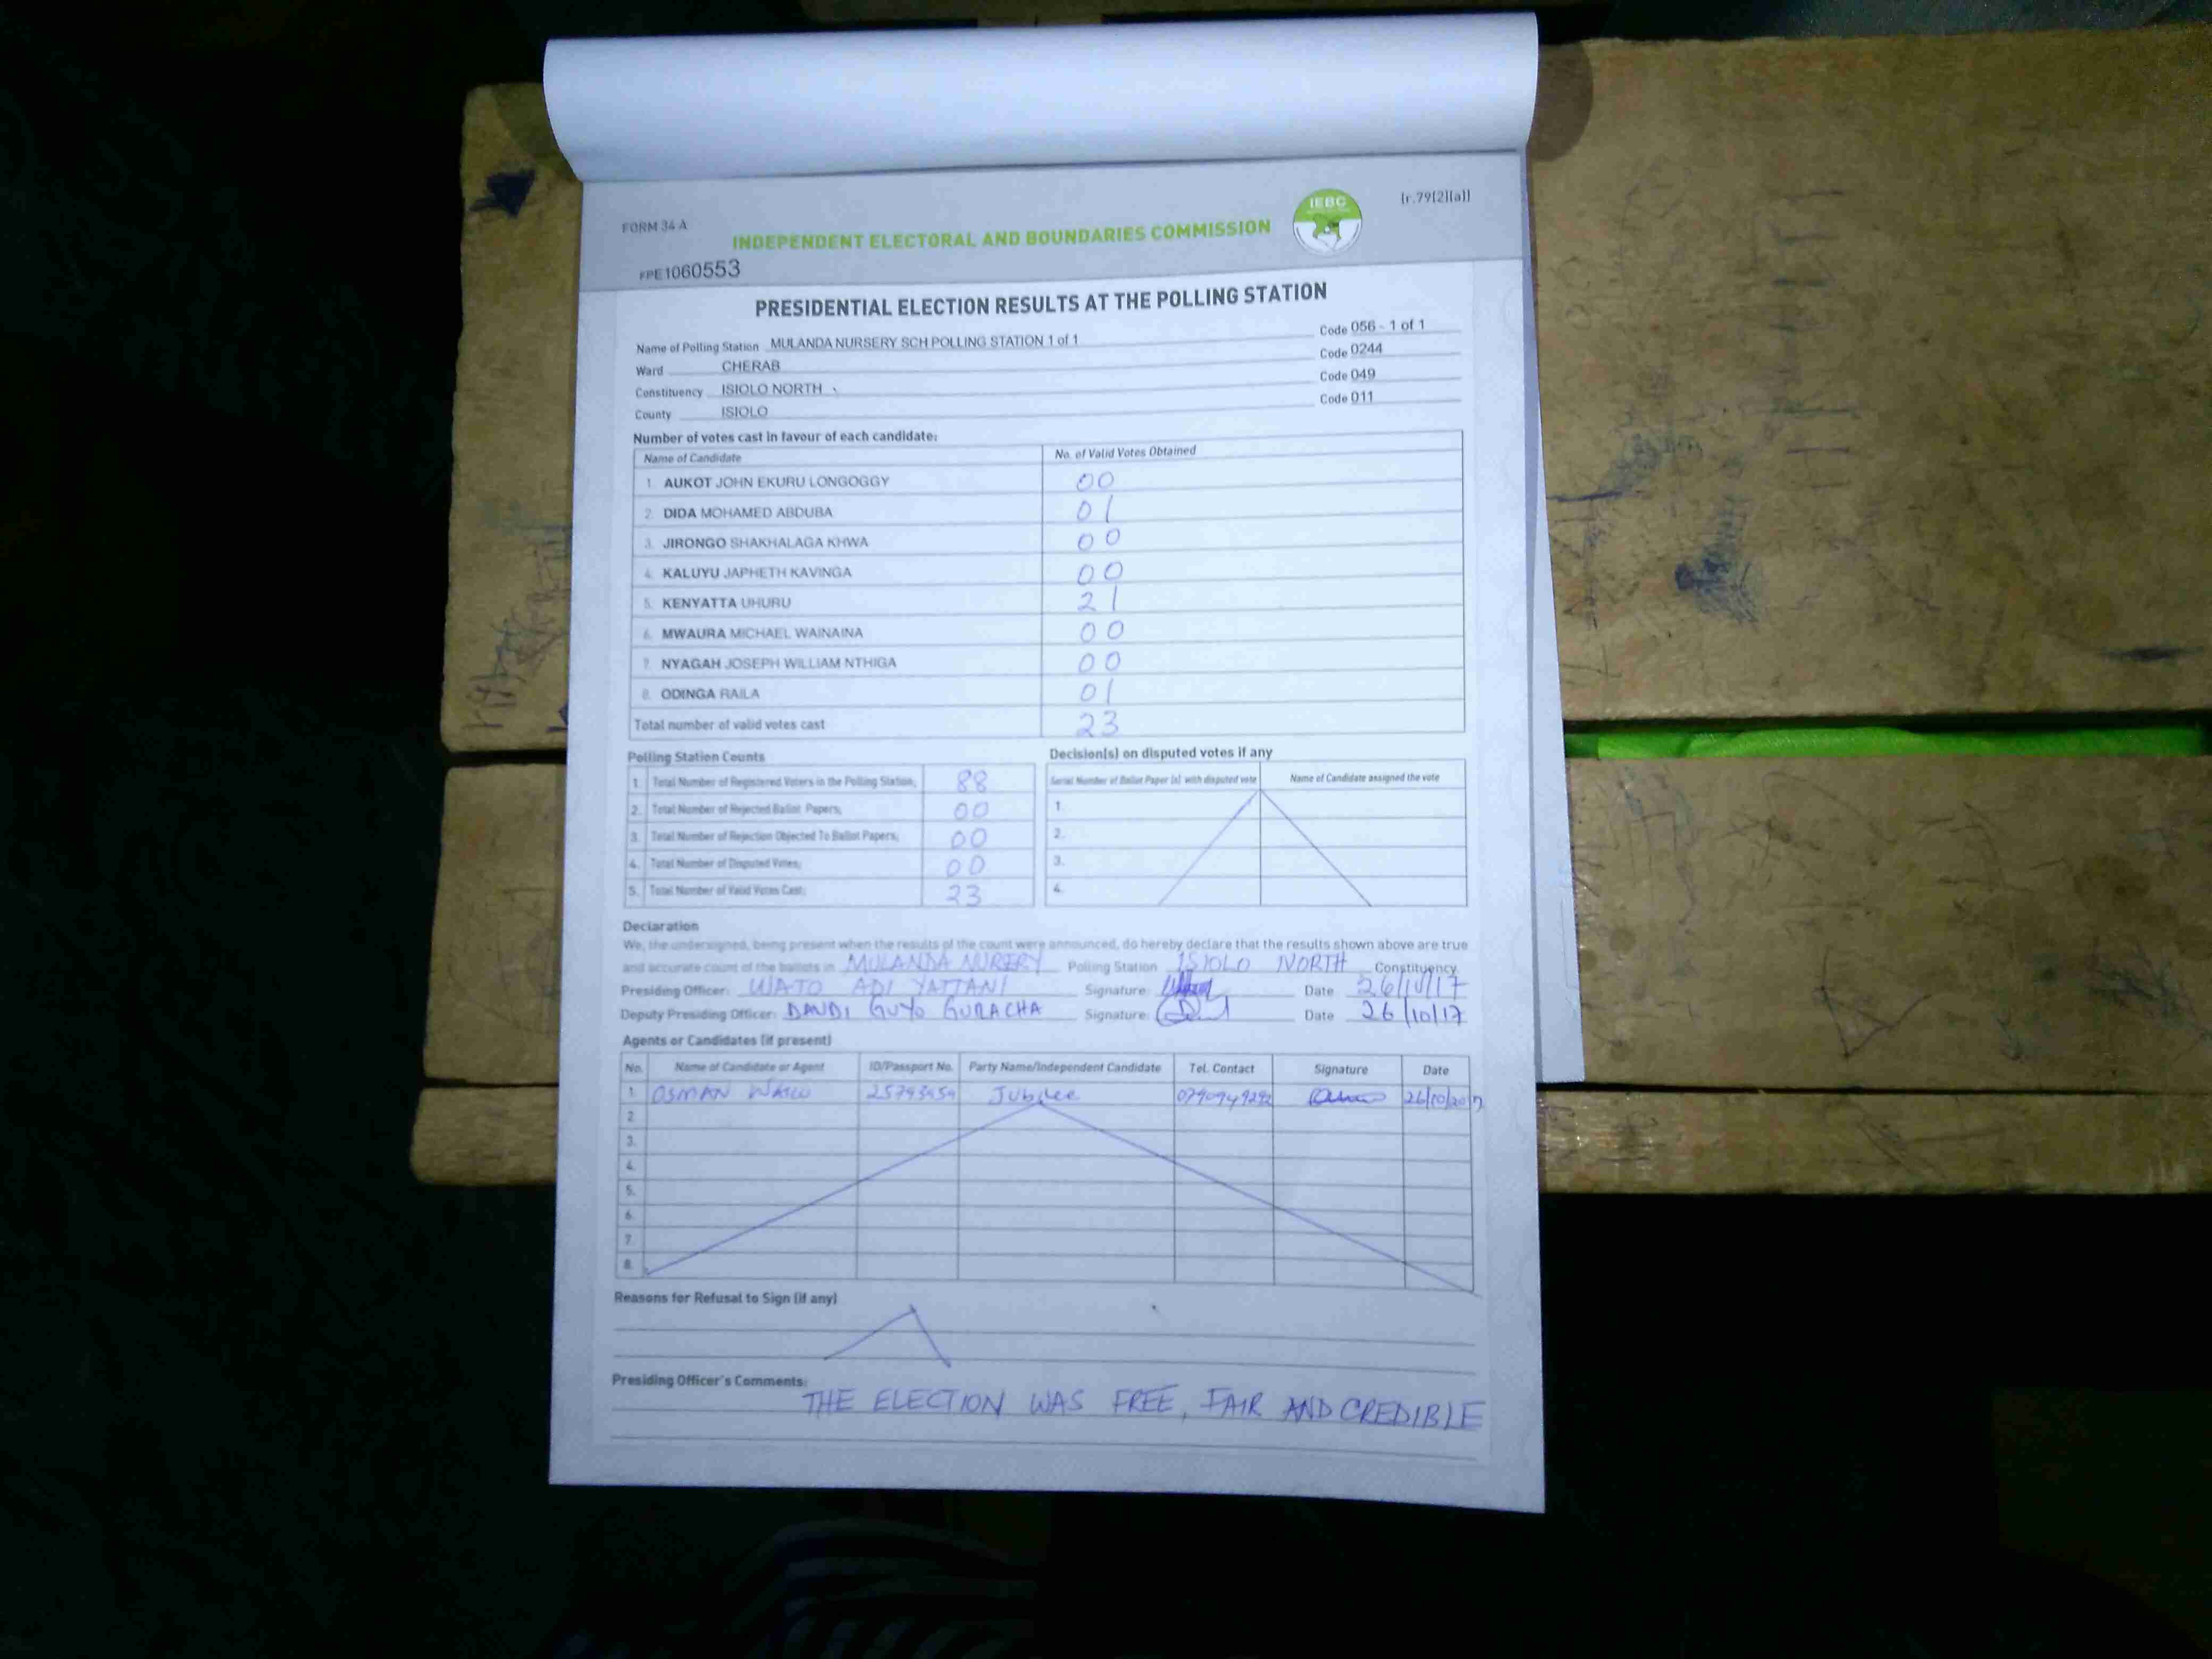 FORM 34 A
IEBC
(r.79(2)(a))
INDEPENDENT ELECTORAL AND BOUNDARIES COMMISSION
FPE1060553
PRESIDENTIAL ELECTION RESULTS AT THE POLLING STATION
Name of Polling Station MULANDA NURSERY SCH POLLING STATION 1 of 1 Code 056 - 1 of 1
Ward CHERAB Code 0244
Constituency ISIOLO NORTH Code 049
County ISIOLO Code 011
Number of votes cast in favour of each candidate:
Name of Candidate No. of Valid Votes Obtained
1. AUKOT JOHN EKURU LONGOGGY 00
2. DIDA MOHAMED ABDUBA 01
3. JIRONGO SHAKHALAGA KHWA 00
4. KALUYU JAPHETH KAVINGA 00
5. KENYATTA UHURU 21
6. MWAURA MICHAEL WAINAINA 00
7. NYAGAH JOSEPH WILLIAM NTHIGA 00
8. ODINGA RAILA 01
Total number of valid votes cast 23
Polling Station Counts
1. Total Number of Registered Voters in the Polling Station; 88
2. Total Number of Rejected Ballot Papers; 00
3. Total Number of Rejection Objected To Ballot Papers; 00
4. Total Number of Disputed Votes; 00
5. Total Number of Valid Votes Cast; 23
Decision(s) on disputed votes if any
Serial Number of Ballot Paper (s) with disputed vote Name of Candidate assigned the vote
1.
2.
3.
4.
Declaration
We, the undersigned, being present when the results of the count were announced, do hereby declare that the results shown above are true
and accurate count of the ballots in MULANDA NURERY Polling Station ISIOLO NORTH Constituency
Presiding Officer: WATO ADI YATTANI Signature: Date 26/10/17
Deputy Presiding Officer: DANDI GUYO GURACHA Signature: Date 26/10/17
Agents or Candidates (if present)
No. Name of Candidate or Agent ID/Passport No. Party Name/Independent Candidate Tel. Contact Signature Date
1. OSMAN Jubilee 26/10/2017
2.
3.
4.
5.
6.
7.
8.
Reasons for Refusal to Sign (if any)
Presiding Officer's Comments:
THE ELECTION WAS FREE, FAIR AND CREDIBLE